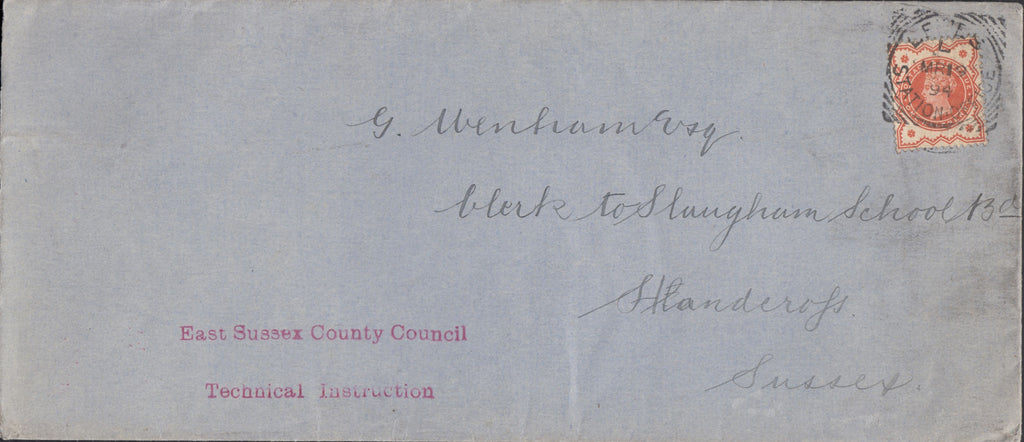 G. Wenham Esq.
Clerk to Slaugham School Bd
Handcross
Sussex.
East Sussex County Council
Technical Instruction
94